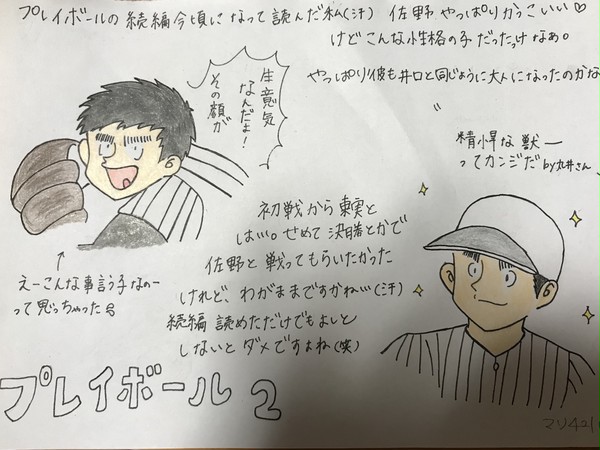 プレイボールの続編今頃になって読んだ私(汗) 佐野やっぱりかっこいい♡
けどこんな性格の子だったっけなぁ。
やっぱり彼も井口と同じように大人になったのかな
生意気
なんだよ!
その顔が
精悍な獣ー
ってカンジだ by丸井さん
初戦から東実と
は…。せめて決勝とかで
佐野と戦ってもらいたかった
けれど、わがままですかね…(汗)
続編読めただけでもよしと
しないとダメですよね(笑)
↑
えーこんな事言う子なのー
って思っちゃった
プレイボール2
マリ421